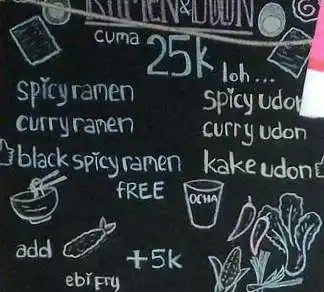 RAMEN & UDON
cuma 25k loh...
spicy ramen
spicy udon
curry ramen
curry udon
black spicy ramen
kake udon
FREE
OCHA
add
ebi fry
+5k